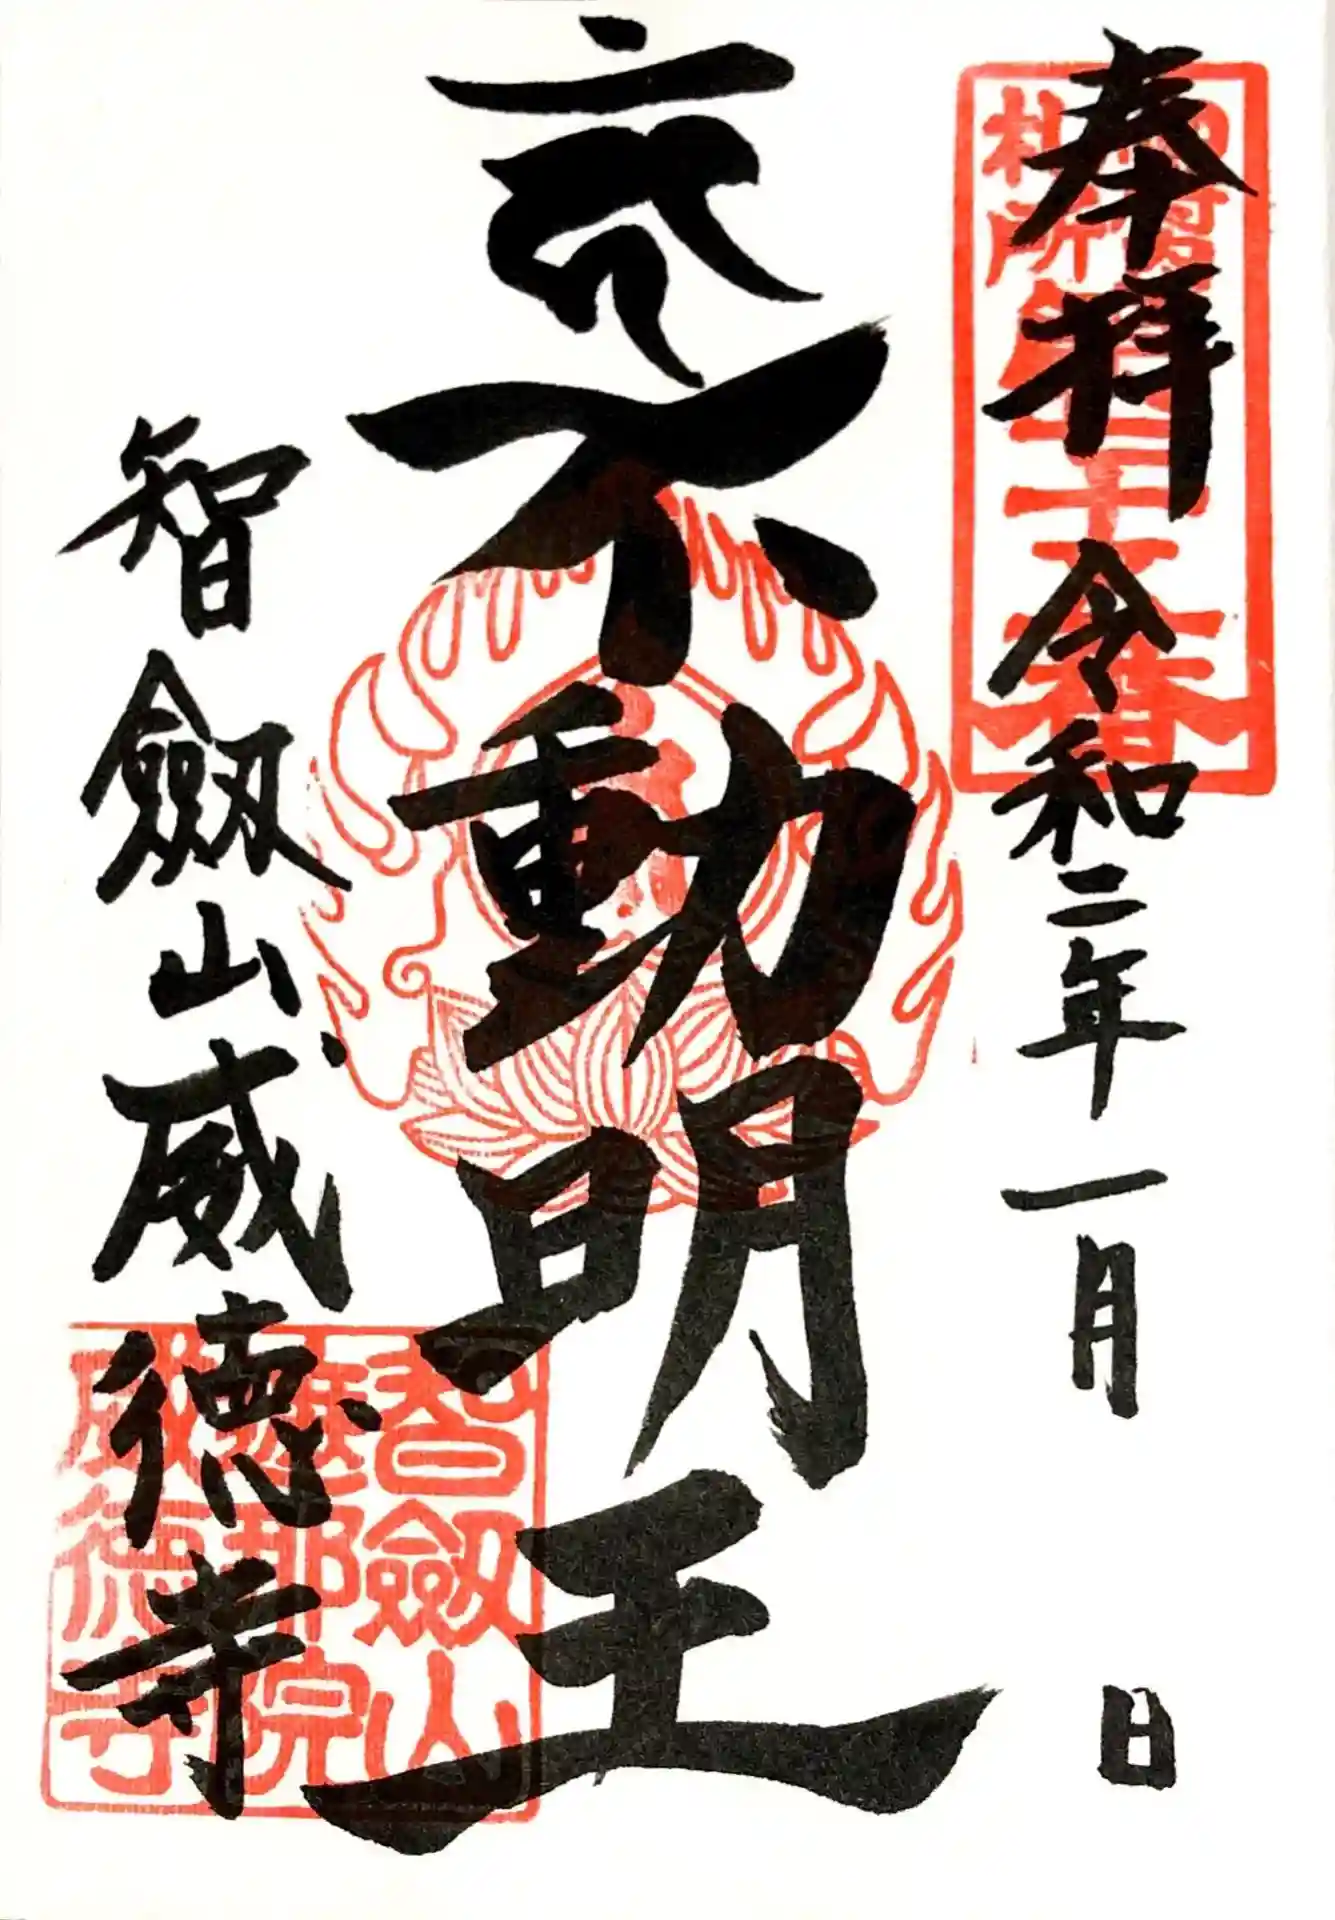 奉拝 令和二年 一月 日
不動明王
智劔山威徳寺
札所
智劔山
遮那院
威徳寺